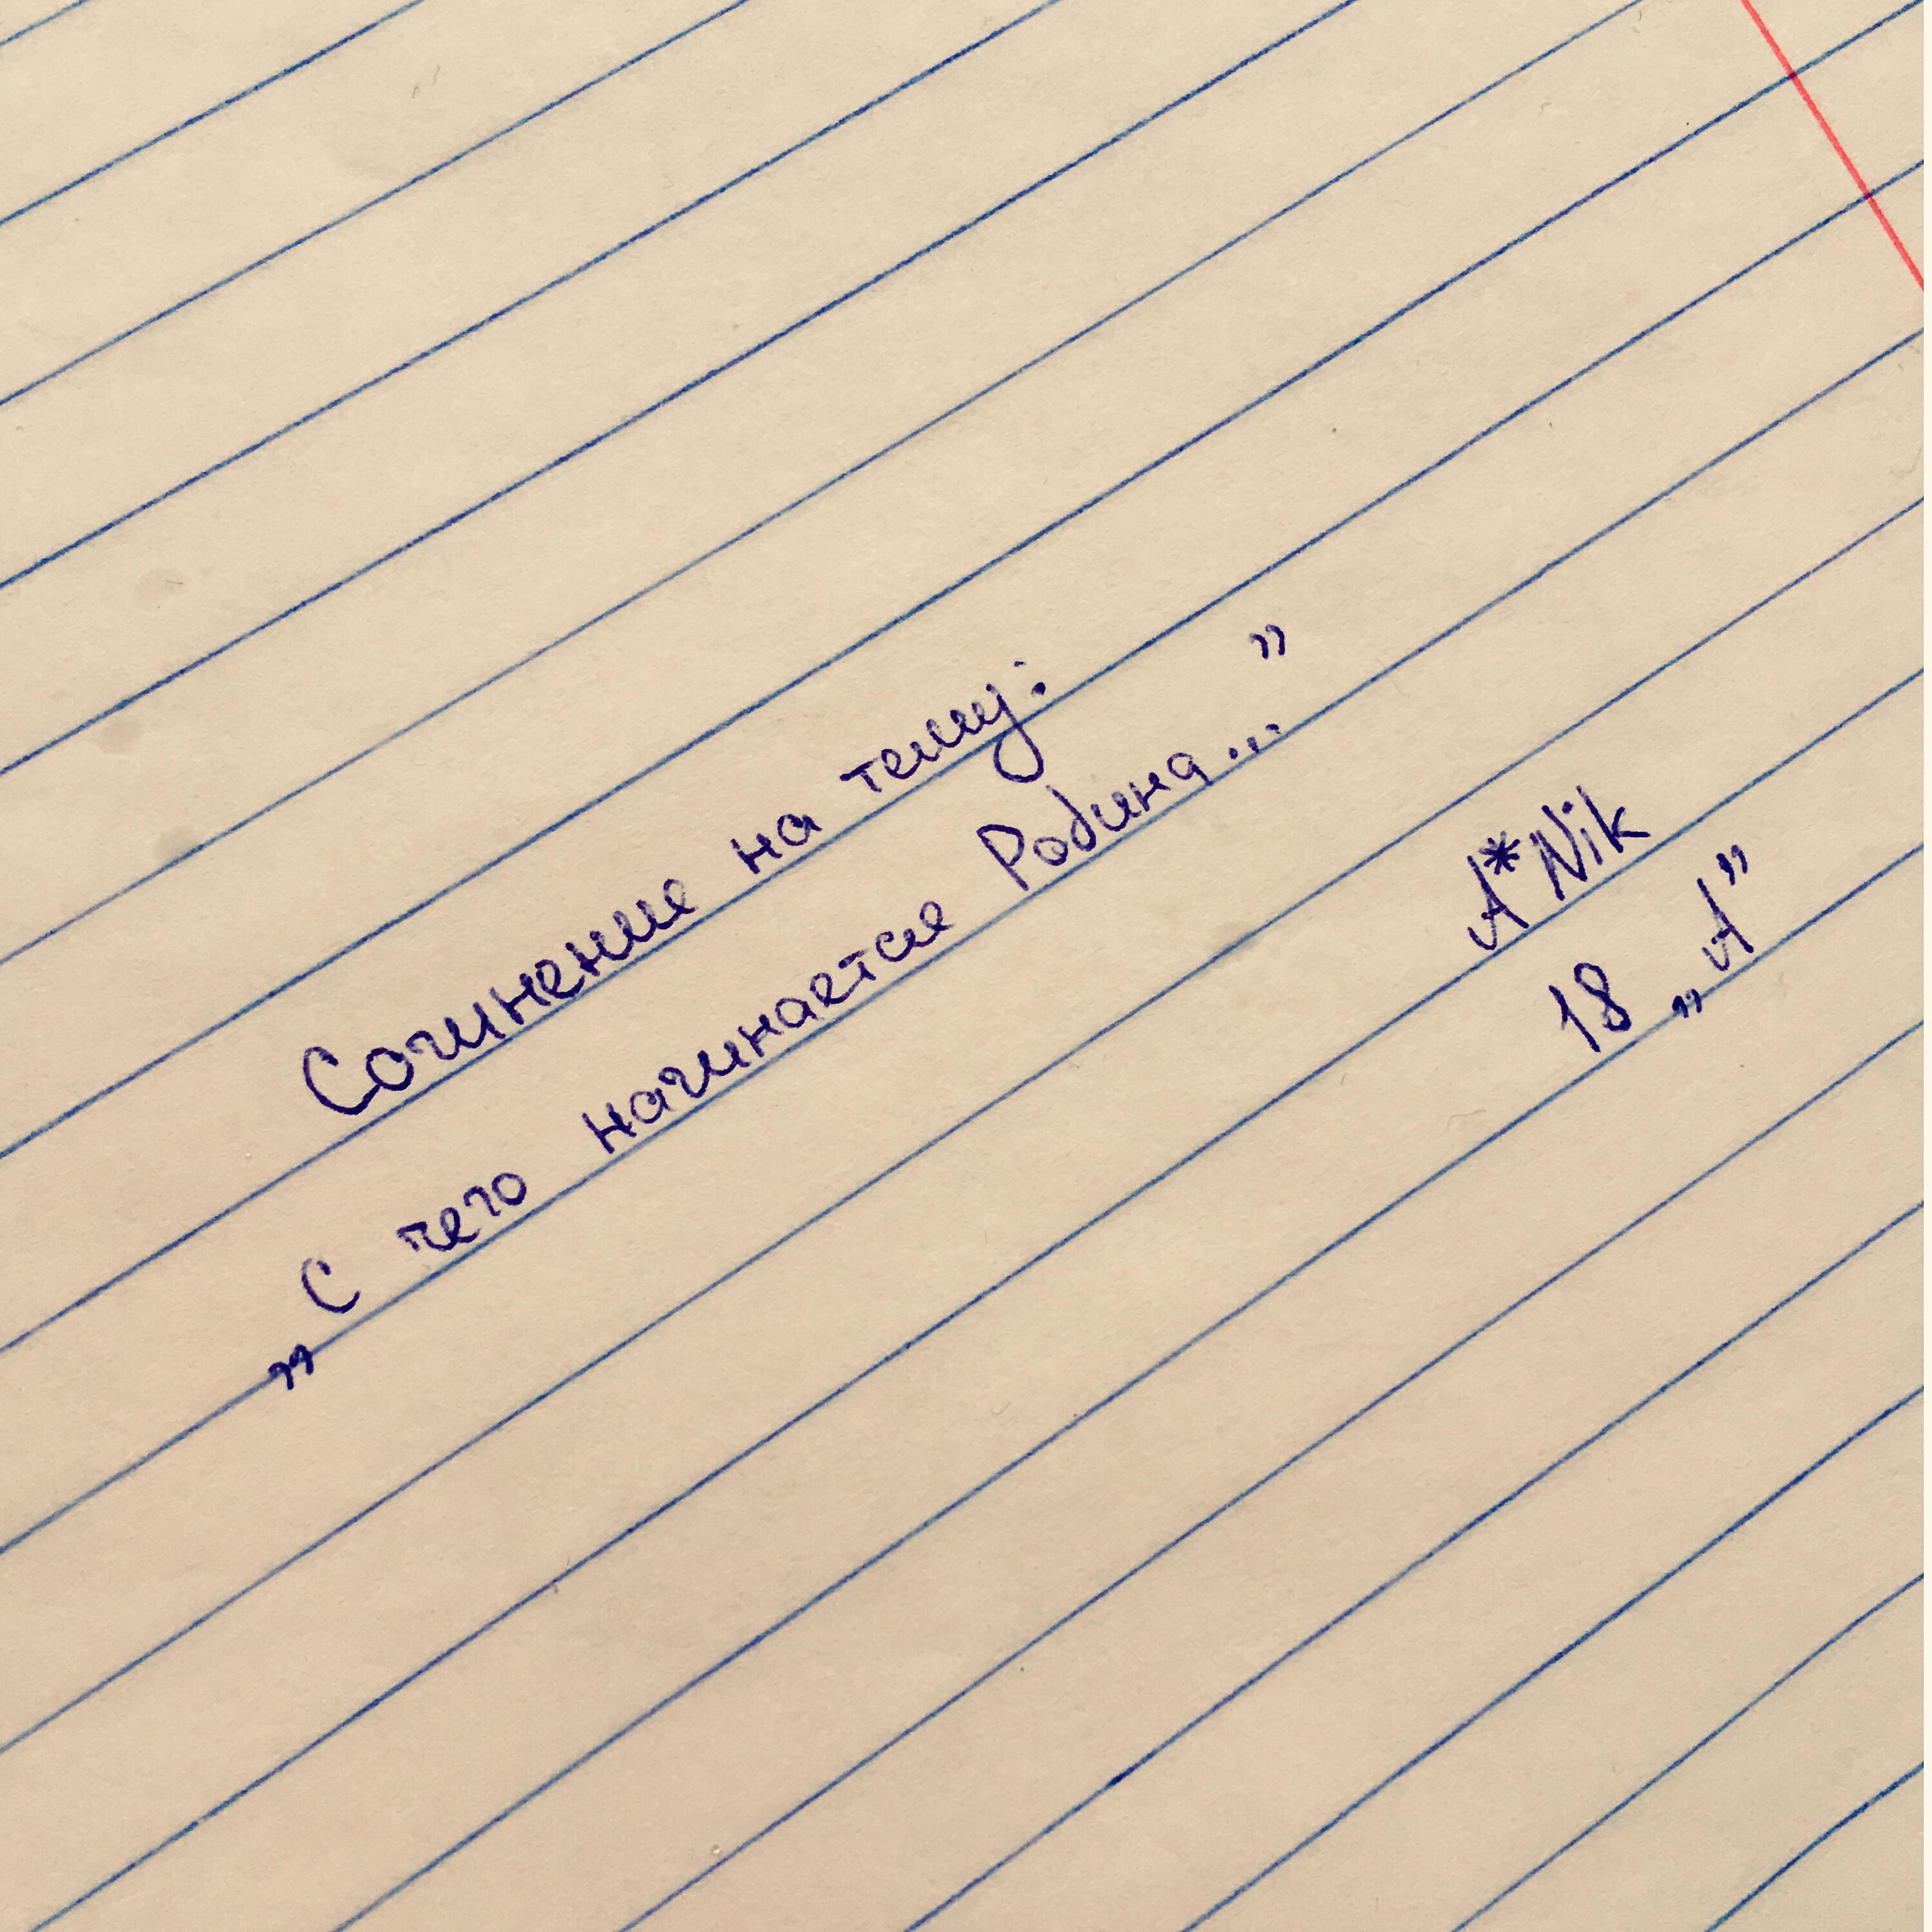 Сочинение на тему:
„С чего начинается Родина..."
A*Nik
18 „А"